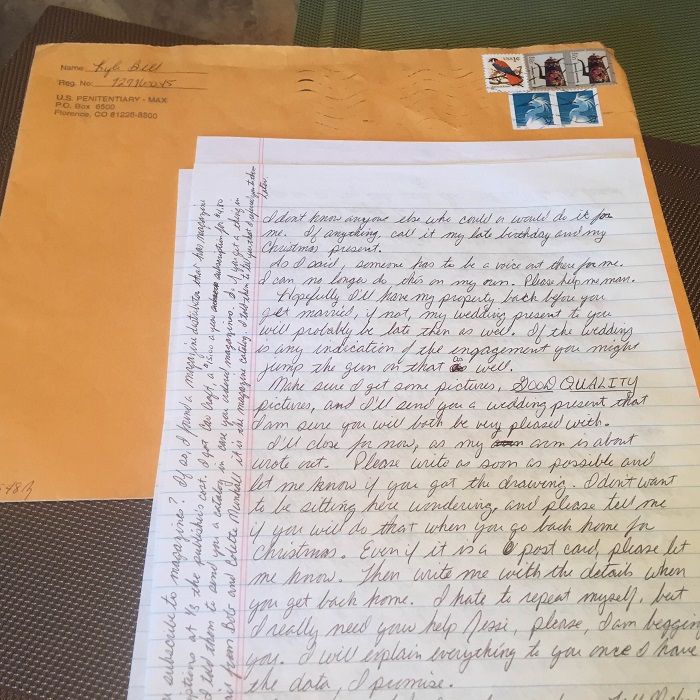 Name: Lyle Bell
Reg. No:
U.S. PENITENTIARY - MAX
P.O. Box 8500
Florence, CO 81226-8500
I don't know anyone else who could or would do it for
me. If anything, call it my late birthday and my
Christmas present.
As I said, someone has to be a voice out there for me.
I can no longer do this on my own. Please help me man.
Hopefully I'll have my property back before you
get married, if not, my wedding present to you
will probably be late then as well. If the wedding
is any indication of the engagement you might
jump the gun on that as well.
Make sure I get some pictures, GOOD QUALITY
pictures, and I'll send you a wedding present that
I am sure you will both be very pleased with.
I'll close for now, as my arm is about
wrote out. Please write as soon as possible and
let me know if you got the drawing. I don't want
to be sitting here wondering, and please tell me
if you will do that when you go back home for
Christmas. Even if it is a post card, please let
me know. Then write me with the details when
you get back home. I hate to repeat myself, but
I really need your help Jessi, please, I am begging
you. I will explain everything to you once I have
the data, I promise.
subscribe to magazines? If so, I found a magazine distributor that has magazine
at 1/3 the publisher's cost. I got a year subscription for
I told them to send you a catalog in case you ordered magazines. If you get a thing in
from Bob and Colette Mandel, it is the magazine catalog I told them to
letter.